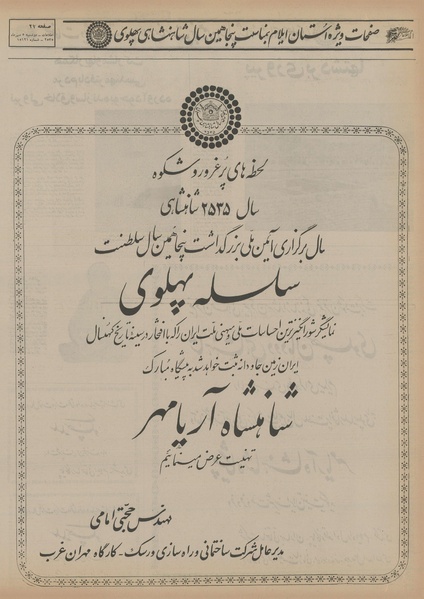 صفحات ویژه استان ایلام بمناسبت پنجاهمین سال شاهنشاهی پهلوی
صفحه ۲۷
لحظه های پرغرور و شکوه
سال ۲۵۳۵ شاهنشاهی
سال برگزاری آئین ملی بزرگداشت پنجاهمین سال سلطنت
سلسله پهلوی
نمایشگر شورانگیزترین احساسات ملی و میهنی ملت ایران را که با افتخار در سینه تاریخ کهنسال
ایران زمین جاودانه ثبت خواهد شد به پیشگاه مبارک
شاهنشاه آریامهر
تهنیت عرض مینمایم
مهندس حجتی امامی
مدیر عامل شرکت ساختمانی و راه سازی ورسک - کارگاه مهران غرب